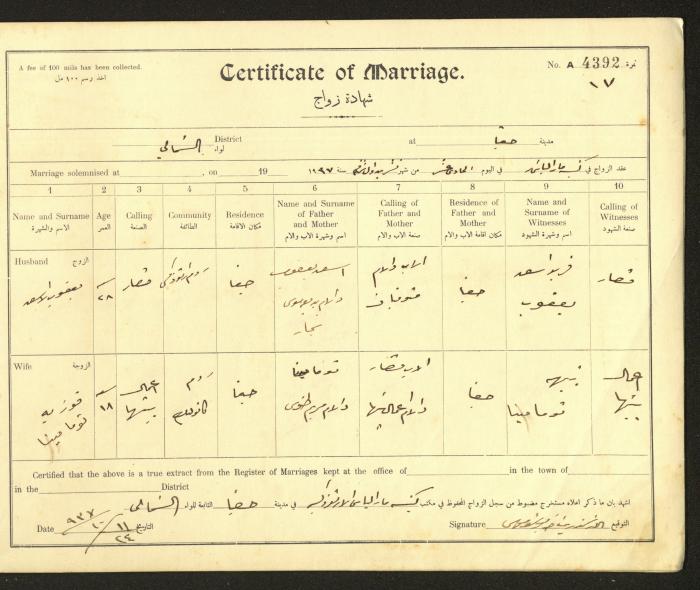 A fee of 100 mils has been collected.
اخذ رسم ١٠٠ مل
Certificate of Marriage.
No. A 4392 نمرة
١٧
شهادة زواج
District
لواء الشمالي
at
حيفا مدينة
Marriage solemnised at , on 19
عقد الزواج في كنيسة مار الياس في اليوم الحادي عشر من شهر سنة ١٩٣٧
1 2 3 4 5 6 7 8 9 10
Name and Surname
الاسم والشهرة
Age
العمر
Calling
الصنعة
Community
الطائفة
Residence
مكان الاقامة
Name and Surname of Father and Mother
اسم وشهرة الاب والام
Calling of Father and Mother
صنعة الاب والام
Residence of Father and Mother
مكان اقامة الاب والام
Name and Surname of Witnesses
اسم وشهرة الشهود
Calling of Witnesses
صنعة الشهود
Husband الزوج
يعقوب اسعد
٢٨
روم ارثوذكس
حيفا
اسعد يعقوب
والام
نجار
الاب والام
متوفيان
حيفا
فريد اسعد
يعقوب
Wife الزوجة
فوزيه
توما مينا
١٨
اعمال
بيتها
روم
كاثوليك
حيفا
توما مينا
والام مريم
الاب
والام اعمال بيتها
حيفا
نبيهه
توما مينا
اعمال
بيتها
Certified that the above is a true extract from the Register of Marriages kept at the office of in the town of
in the District
اشهد بان ما ذكر اعلاه مستخرج مضبوط من سجل الزواج المحفوظ في مكتب كنيسة مار الياس الارثوذكسية في مدينة حيفا التابعة للواء الشمالي
Date ٩٣٧ ١١ ٢٤ التاريخ
Signature التوقيع